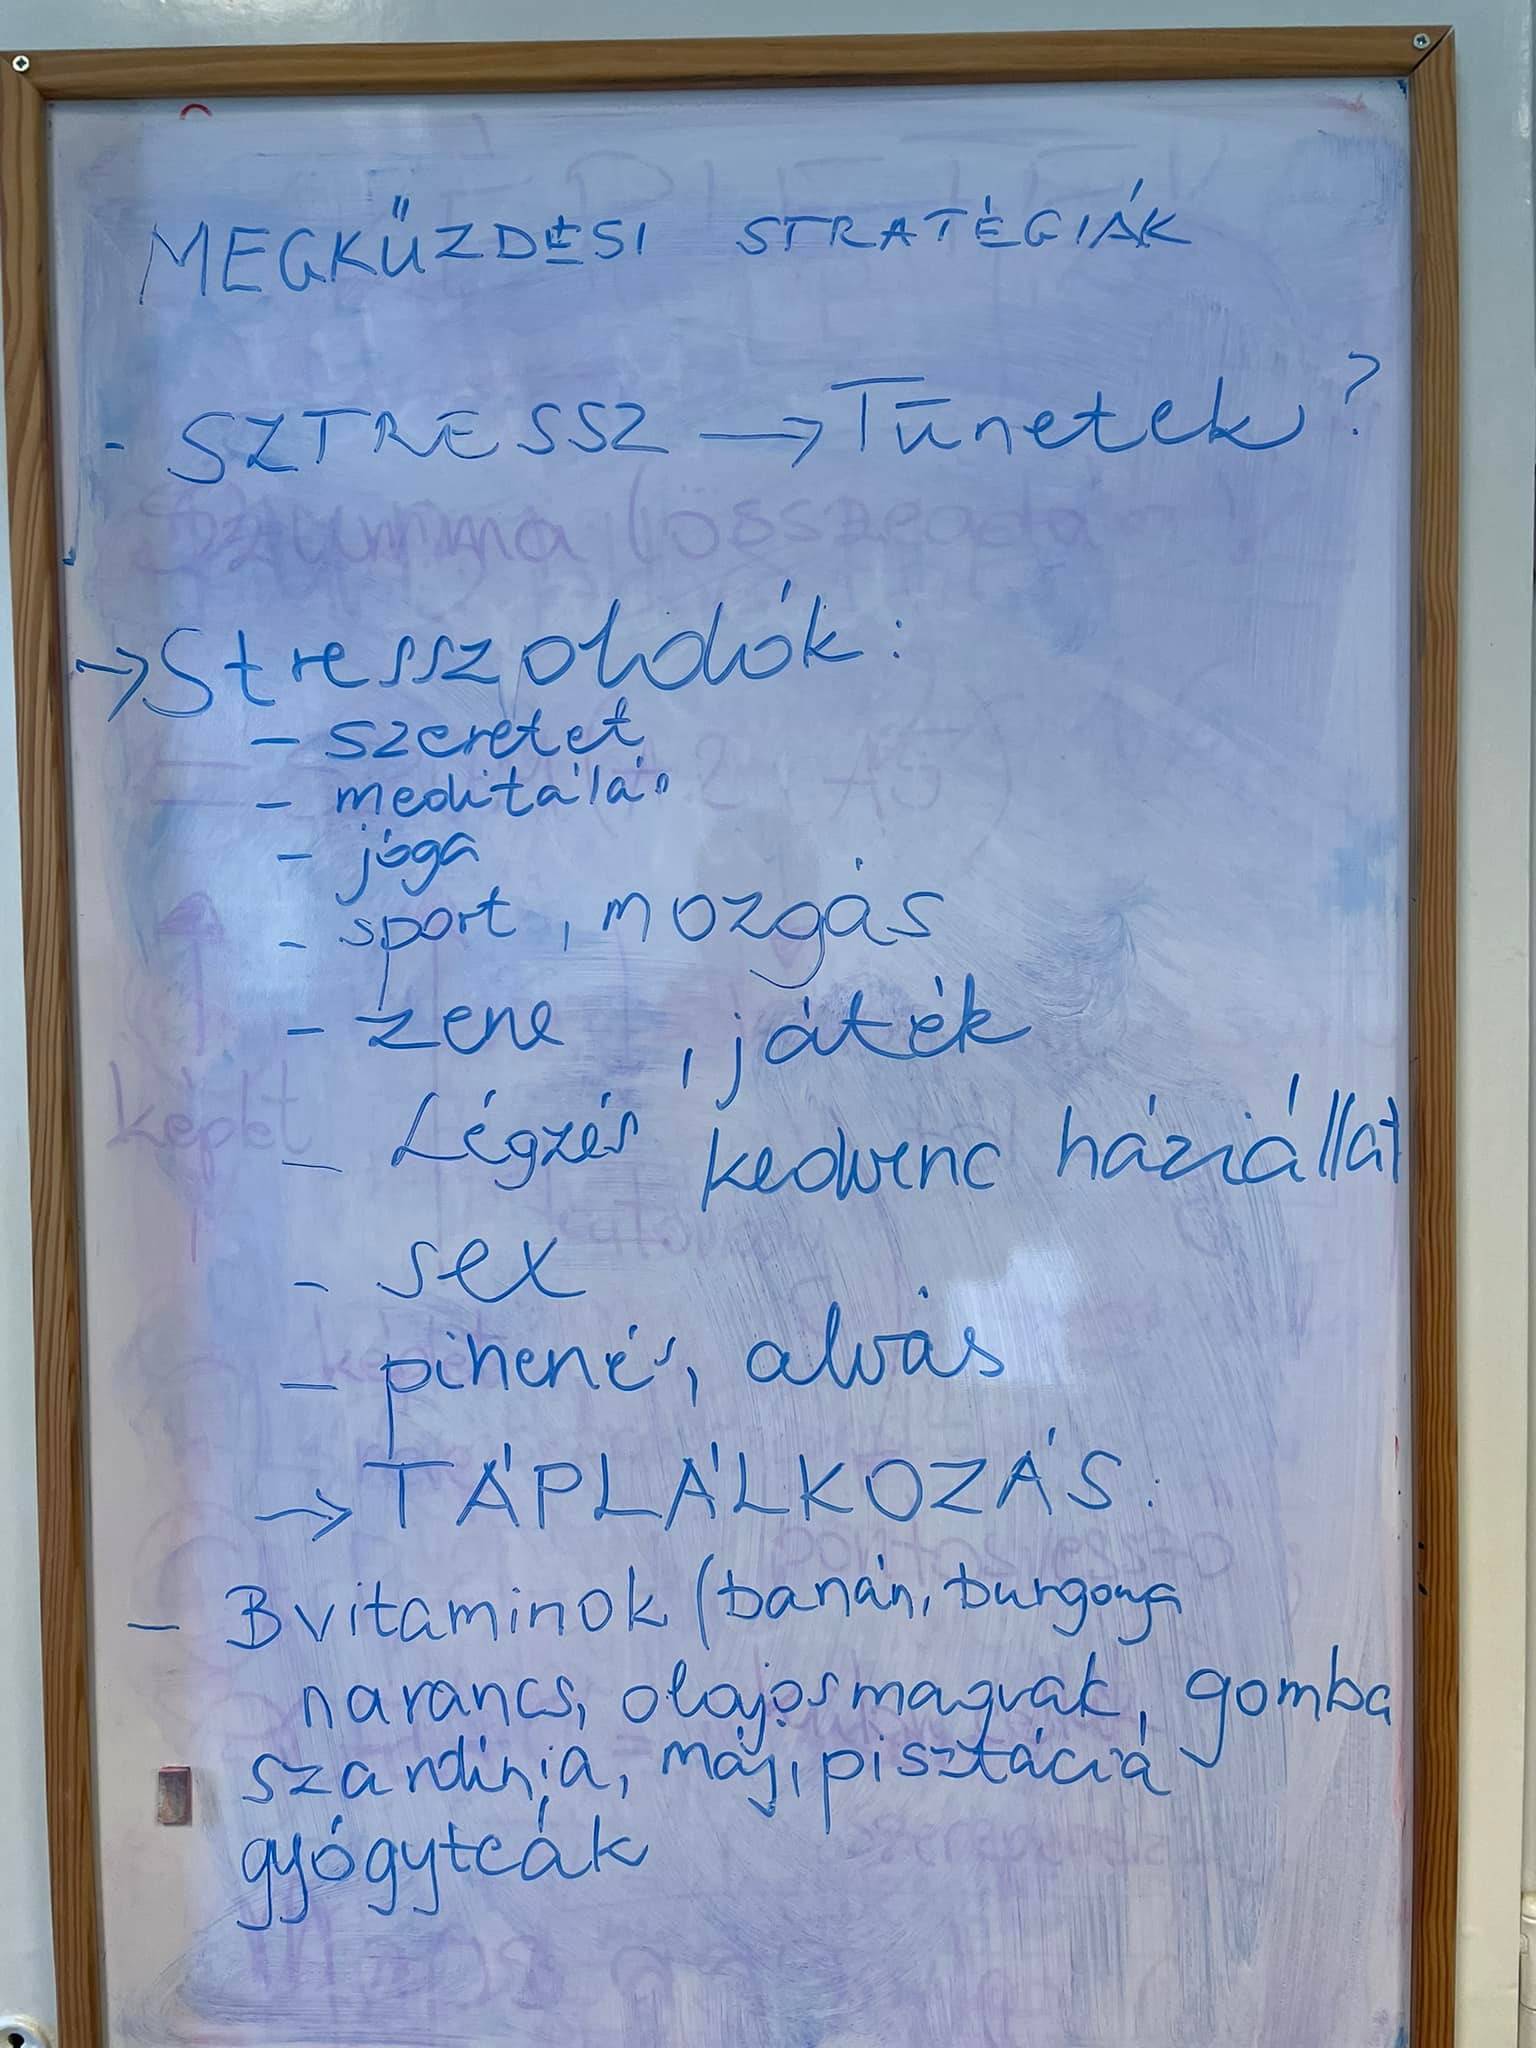 MEGKŰZDÉSI STRATÉGIÁK
- SZTRESSZ → Tűnetek?
→ Stresszoldók:
- szeretet
- meditálás
- jóga
- sport, mozgás
- zene, játék
- Légzés kedvenc háziállat
- sex
- pihenés, alvás
→ TÁPLÁLKOZÁS:
- B vitaminok (banán, burgonya
narancs, olajosmagvak, gomba
szardínia, máj, pisztáciá
gyógyteák